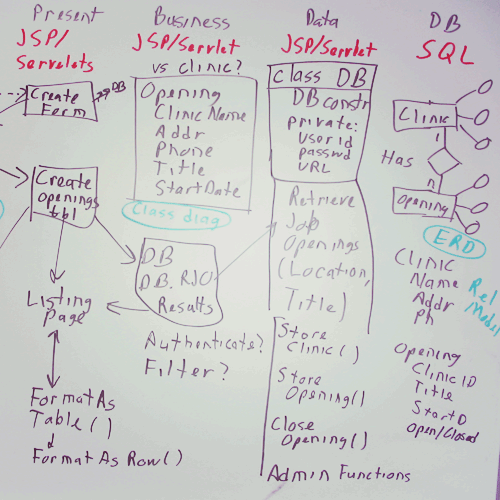 Present
JSP/
Servelets
Create
Form
DB
Create
openings
tbl
Listing
Page
Format As
Table ( )
Format As Row ( )
Business
JSP/Servlet
vs clinic?
Opening
Clinic Name
Addr
Phone
Title
Start Date
Class diag
DB
DB. RJO
Results
Authenticate?
Filter?
Data
JSP/Servlet
class DB
DB constr
private:
userid
passwd
URL
Retrieve
Job
Openings
(Location,
Title)
Store
Clinic ( )
Store
Opening ( )
Close
Opening ( )
Admin Functions
DB
SQL
Clinic
1
Has
n
Opening
ERD
Clinic
Name
Addr
Ph
Rel
Model
Opening
Clinic ID
Title
Start D
Open/Closed